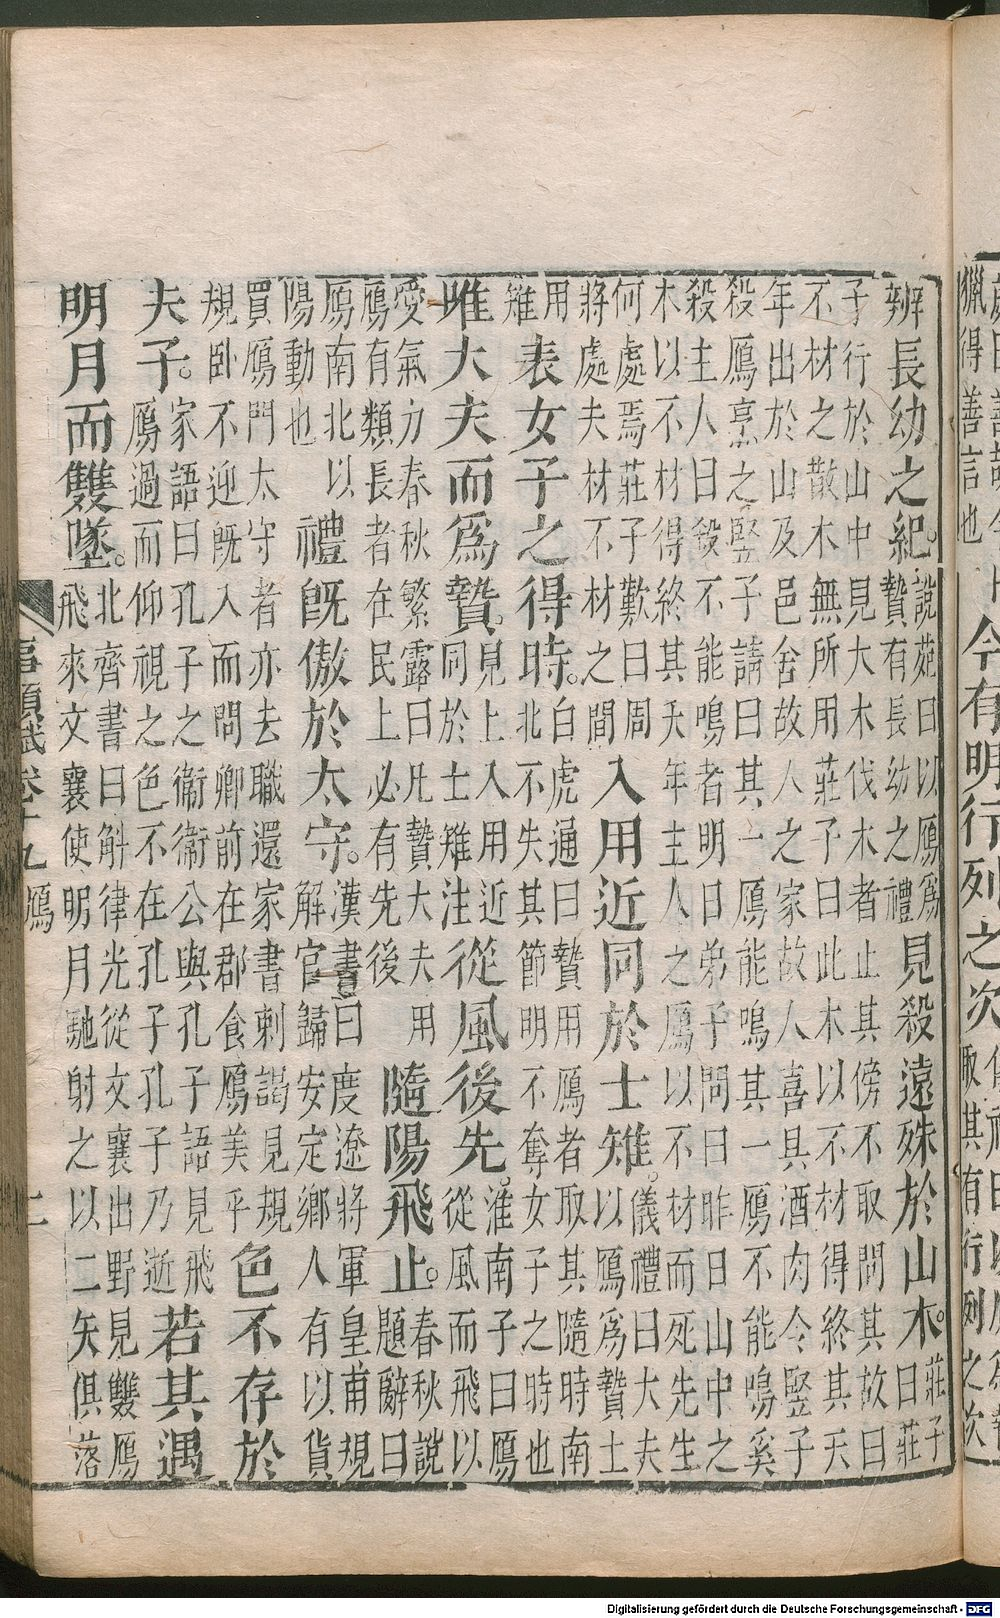 獵得善言也
今有明行列之次
取其有行列之次
辨長幼之紀。
說苑曰以鴈為
贄有長幼之禮
見殺遠殊於山木。
莊子
曰莊
子行於山中見大木伐木者止其傍不取問其故曰
不材之散木無所用莊子曰此木以不材得終其天
年出於山及邑舍故人之家故人喜具酒肉令竪子
殺鴈亨之竪子請曰其一鴈能鳴其一鴈不能鳴奚
殺主人曰殺不能鳴者明日弟子問曰昨日山中之
木以不材得終其天年主人之鴈以不材而死先生
何處焉莊子歎曰周
將處夫材不材之間
入用近同於士雉。
儀禮曰大夫
以鴈為贄士
用
雉
表女子之得時。
白虎通曰贄用鴈者取其隨時南
北不失其節明不奪女子之時也
唯大夫而為贄。
見上入用近
同於士雉注
從風後先。
淮南子曰鴈
從風而飛以
愛氣力春秋繁露曰凡贄大夫用
鴈有類長者在民上必有先後
隨陽飛止。
春秋說
題辭曰
鴈南北以
陽動也
禮旣傲於太守。
漢書曰度遼將軍皇甫規
解官歸安定鄉人有以貨
買鴈門太守者亦去職還家書刺謁見規
規卧不迎旣入而問卿前在郡食鴈美乎
色不存於
夫子。
家語曰孔子之衞衞公與孔子語見飛
鴈過而仰視之色不在孔子孔子乃逝
若其遇
明月而雙墜。
北齊書曰斛律光從文襄出野見雙鴈
飛來文襄使明月馳射之以二矢俱落
事類賦卷十九 鴈
Digitalisierung gefördert durch die Deutsche Forschungsgemeinschaft - DFG